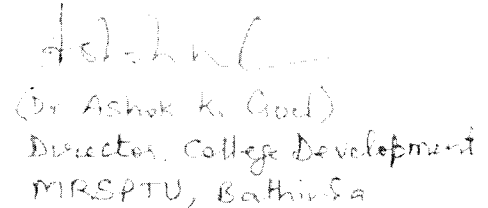 Ashok
(Dr Ashok K. Goel)
Director, College Development
MRSPTU, Bathinda